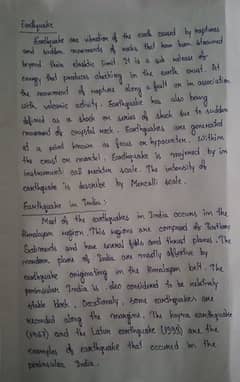 Earthquake
Earthquake are vibration of the earth caused by ruptures
and sudden movements of rocks that have been strained
beyond their elastic limit. It is a sub release of
energy that produces shaking in the earth crust. At
the movement of rupture along a fault or in association
with volcanic activity. Earthquake has also being
defined as a shock or series of shock due to sudden
movement of crystal rock. Earthquakes are generated
at a point known as focus or hypocenter within
the crust or mantel. Earthquake is measured by im
instrument call scale. The intensity of
earthquake is describe by Mercalli scale.
Earthquake in India:
Most of the earthquakes in India occurs in the
Himalayan region. This regions are composed of Tertiary
Sediments and have several folds and thrust planes. The
plains of India are mostly affected by
earthquake originating in the Himalayan belt. The
peninsular India is also considered to be relatively
stable block. Occationaly, some earthquakes are
recorded along the margins. The koyna earthquake
(1967) and the Latur earthquake (1993) are the
examples of earthquake that occured in the
peninsular India.